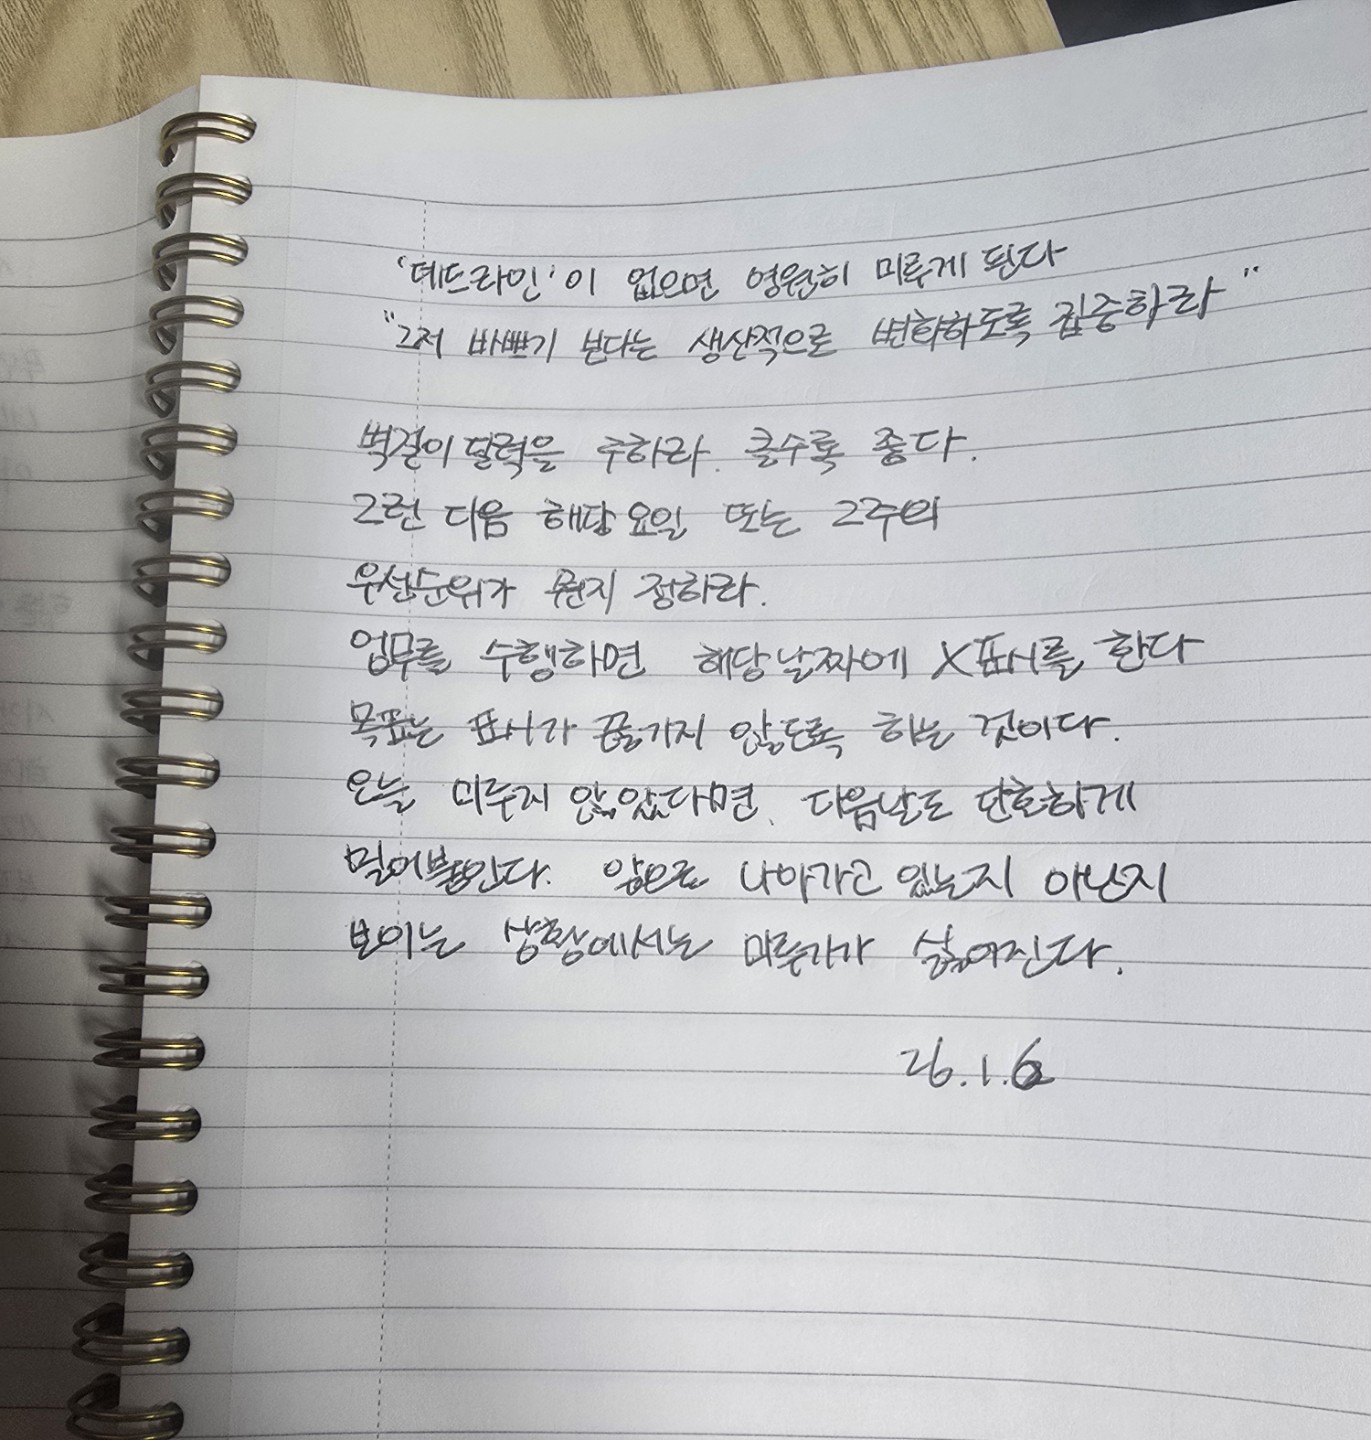 '데드라인'이 없으면 영원히 미루게 된다
"그저 바쁘기 보다는 생산적으로 변화하도록 집중하라"
벽걸이 달력을 구하라. 클수록 좋다.
그런 다음 해당 요일 또는 그 주의
우선순위가 뭔지 정하라.
업무를 수행하면 해당 날짜에 X표시를 한다
목표는 표시가 끊기지 않도록 하는 것이다.
오늘 미루지 않았다면, 다음날도 단호하게
밀어붙인다. 앞으로 나아가고 있는지 아닌지
보이는 상황에서는 미루기가 싫어진다.
26.1.6